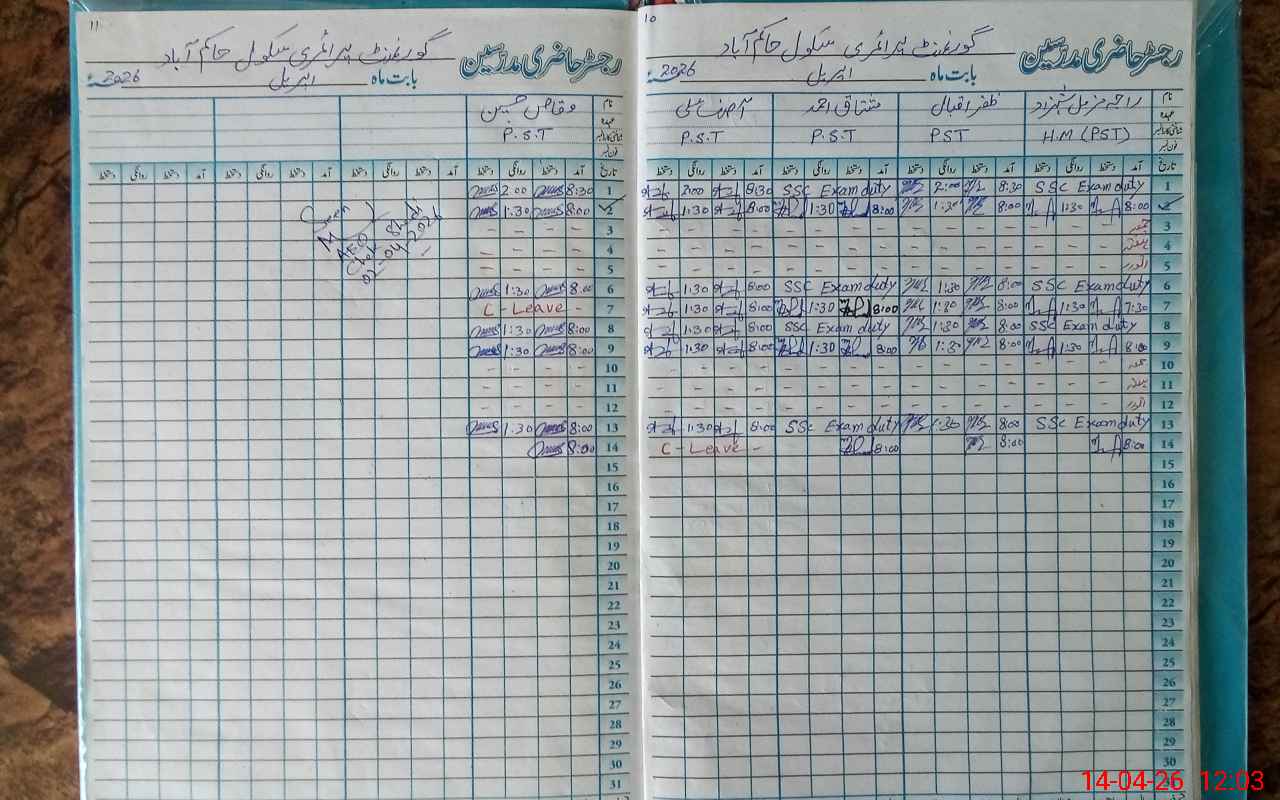 10
رجسٹر حاضری مدرسین گورنمنٹ پرائمری سکول حاکم آباد
بابت ماہ اپریل 2026ء
نام راجہ مزمل شہزاد ظفر اقبال مشتاق احمد آصف علی
عہدہ H.M (PST) PST P.S.T P.S.T
فون نمبر
تاریخ آمد دستخط روانگی دستخط آمد دستخط روانگی دستخط آمد دستخط روانگی دستخط آمد دستخط روانگی دستخط
1 SSC Exam duty 8:30 2:00 SSC Exam duty 8:30 2:00
2 8:00 1:30 8:00 1:30 8:00 1:30 8:00 1:30
3 جمعہ - - - - - - - - - - - - - - -
4 ہفتہ - - - - - - - - - - - - - - -
5 اتوار - - - - - - - - - - - - - - -
6 SSC Exam duty 8:00 1:30 SSC Exam duty 8:00 1:30
7 7:30 1:30 8:00 1:30 8:00 1:30 8:00 1:30
8 SSC Exam duty 8:00 1:30 SSC Exam duty 8:00 1:30
9 8:00 1:30 8:00 1:30 8:00 1:30 8:00 1:30
10 جمعہ - - - - - - - - - - - - - - -
11 ہفتہ - - - - - - - - - - - - - - -
12 اتوار - - - - - - - - - - - - - - -
13 SSC Exam duty 8:00 1:30 SSC Exam duty 8:00 1:30
14 8:00 8:00 8:00 C - Leave -
15
16
17
18
19
20
21
22
23
24
25
26
27
28
29
30
11
رجسٹر حاضری مدرسین گورنمنٹ پرائمری سکول حاکم آباد
بابت ماہ اپریل 2026ء
نام وقاص حسین
عہدہ P.S.T
فون نمبر
تاریخ آمد دستخط روانگی دستخط آمد دستخط روانگی دستخط آمد دستخط روانگی دستخط آمد دستخط روانگی دستخط
1 8:30 2:00
2 8:00 1:30
3 - - - -
4 - - - -
5 - - - -
6 8:00 1:30
7 C - Leave -
8 8:00 1:30
9 8:00 1:30
10 - - - -
11 - - - -
12 - - - -
13 8:00 1:30
14 8:00
15
16
17
18
19
20
21
22
23
24
25
26
27
28
29
30
31
Seen
AEO
02-04-2026
14-04-26 12:03